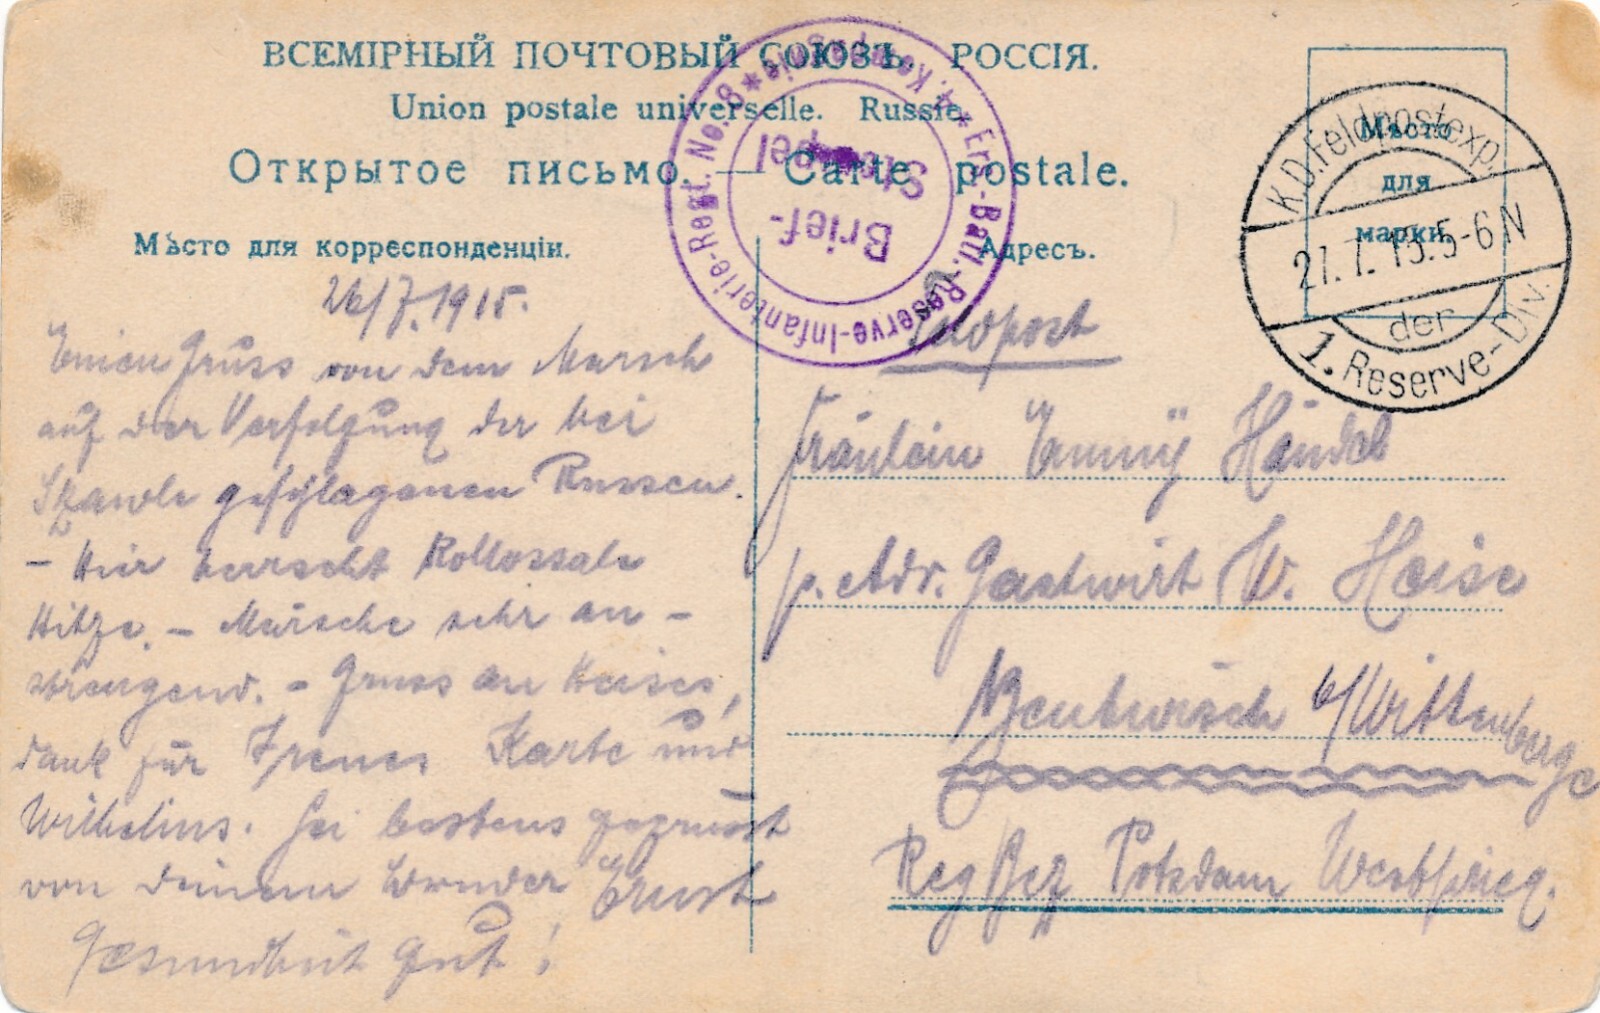 ВСЕМІРНЫЙ ПОЧТОВЫЙ СОЮЗЪ. РОССІЯ.
Union postale universelle. Russie.
Открытое письмо. — Carte postale.
Мѣсто для корреспонденціи.
Адресъ.
Мѣсто
для
марки.
4. Kompagnie * Ers.-Batl.-Reserve-Infanterie-Regt. No. 8 *
Brief-
Stempel
K.D. Feldpostexp.
27.7.15.5-6N
der
1. Reserve-Div.
26/7.1915.
Einen Gruss von dem Marsch
auf der Verfolgung der bei
Szawle geschlagenen Russen.
- Hier herrscht Kollossale
Hitze. - Märsche sehr an-
strengend. - Gruss an Heises,
dank für Irenes Karte und
Wilhelms. Sei bestens gegrüsst
von deinem Bruder Ernst
Gesundheit gut!
Feldpost
Fräulein Emmy Händel
p. Adr. Gastwirt W. Heise
Bentwisch b/Wittenberge
Reg Bez Potsdam Westprieg.